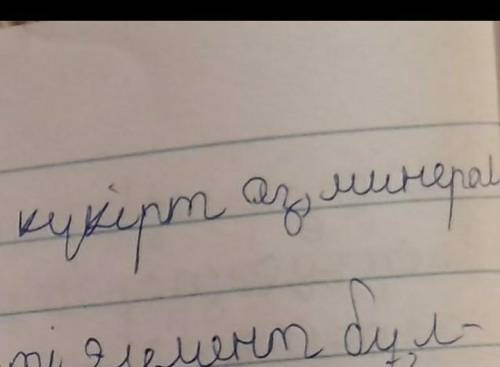 күкірт аз, минерал
ті элемент бұл-